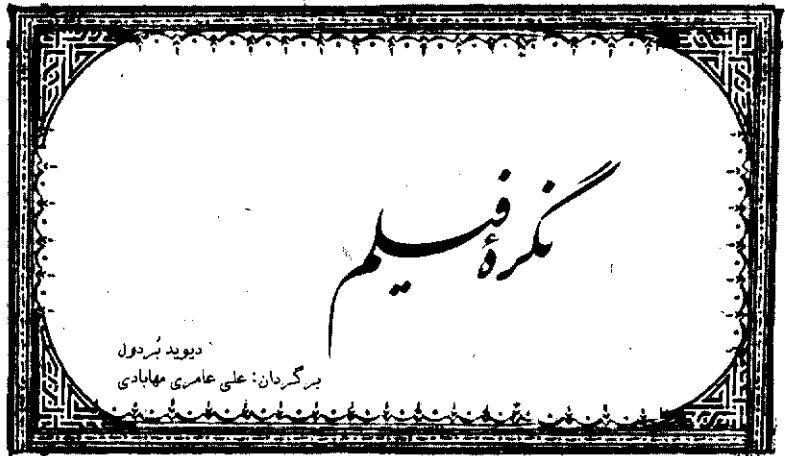 نگرهٔ فیلم
دیوید بُردول
برگردان: علی عامری مهابادی